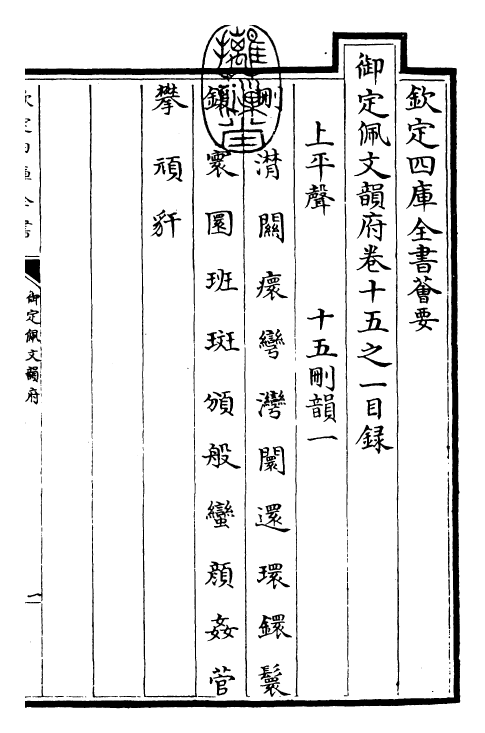 欽定四庫全書薈要
御定佩文韻府卷十五之一目録
上平聲　十五刪韻一
刪潸關瘝彎灣闤還環鐶鬟
鍰寰圜班斑頒般蠻顔姦菅
攀頑豻
御定佩文韻府
一